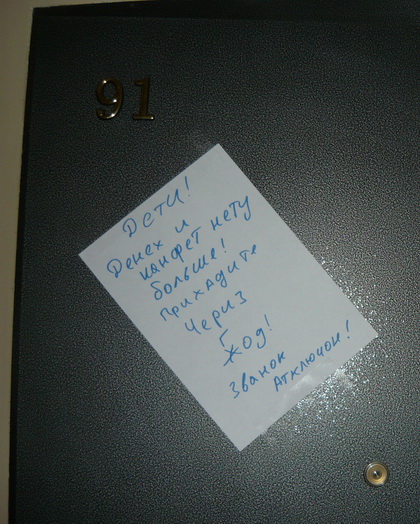 91
ДЕТИ!
Денех и
канфет нету
больше!
прихадите
Чериз
Год!
Званок
Атключон!